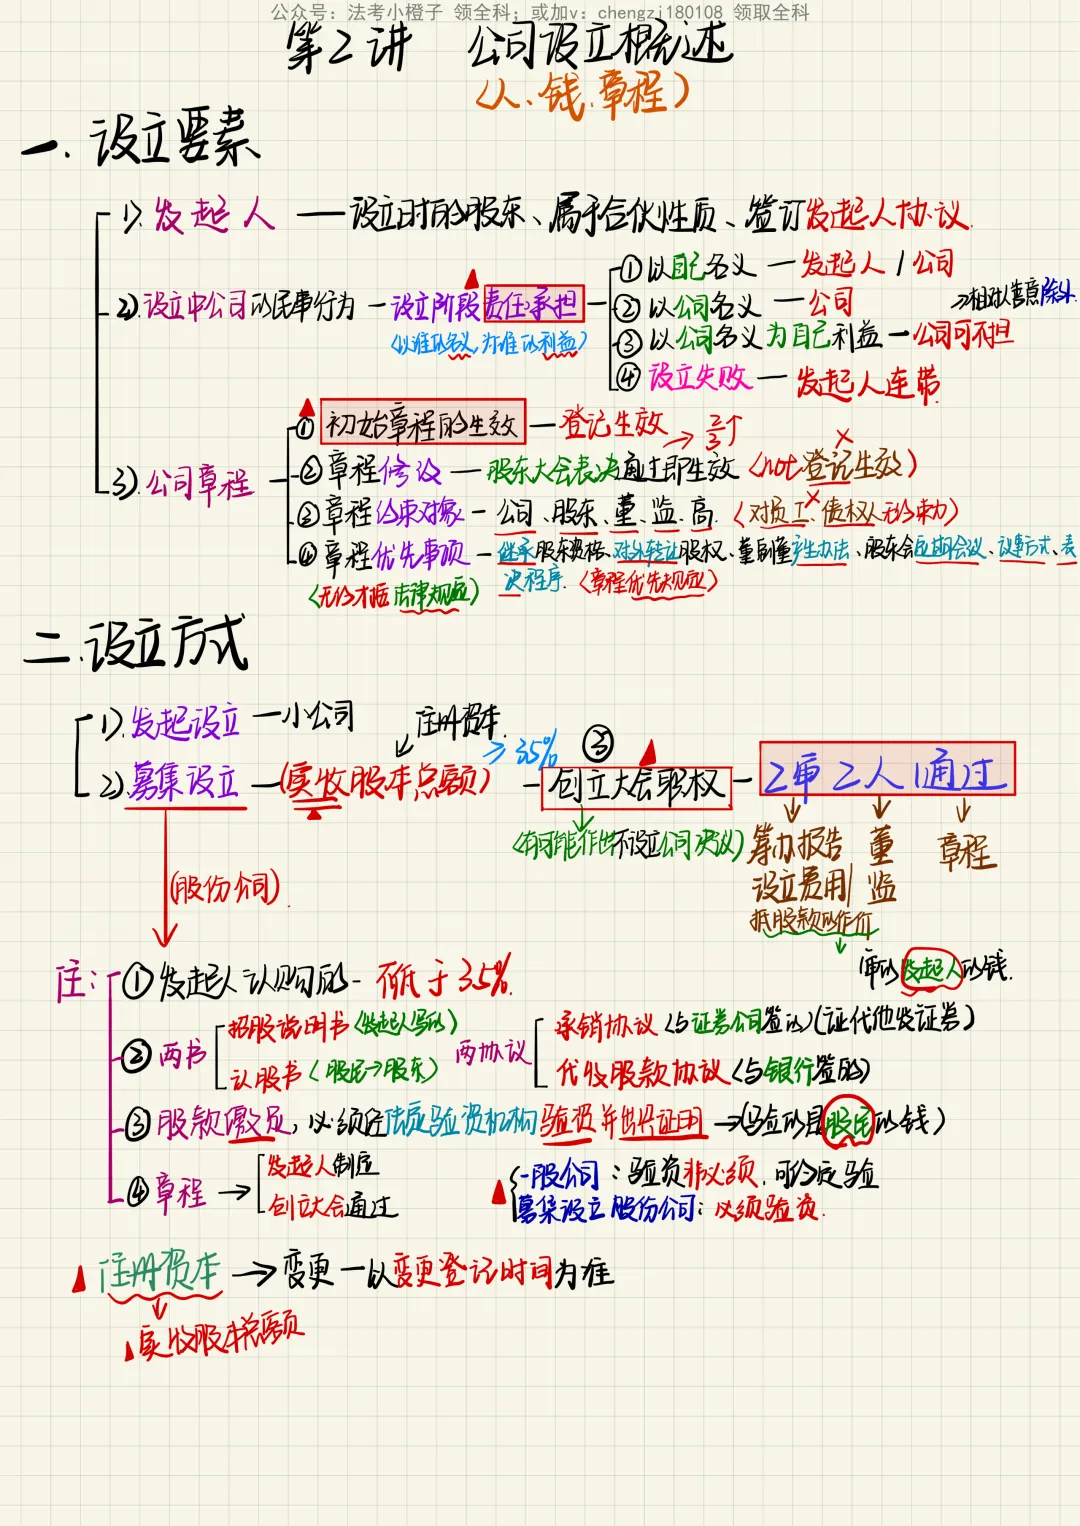 公众号：法考小橙子 领全科；或加v：chengzi180108 领取全科
第2讲 公司设立概述
〈人、钱、章程〉
一. 设立要素
1). 发起人 — 设立时的股东、属于合伙性质、签订发起人协议.
2). 设立中公司的民事行为 — 设立阶段责任承担
〈以谁的名义, 为谁的利益〉
① 以自己名义 — 发起人 / 公司
② 以公司名义 — 公司
→相对人善意除外
③ 以公司名义为自己利益 — 公司可不担
④ 设立失败 — 发起人连带
3). 公司章程
① 初始章程的生效 — 登记生效
② 章程修改 — 股东大会表决通过即生效〈not 登记生效〉
→ 2/3个
③ 章程约束对象 — 公司、股东、董、监、高.〈对员工、债权人无约束力〉
④ 章程优先事项 — 继承股东资格、对外转让股权、董副董产生办法、股东会定期会议、议事方式、表
决程序.〈章程优先规定〉
〈无约才后法律规定〉
二. 设立方式
1). 发起设立 — 小公司
注册资本
2). 募集设立 — 〈实收股本总额〉
≥35%
③
— 创立大会职权 — 2审2人1通过
〈有可能作出不设立公司决议〉
筹办报告 董 章程
设立费用 监
抵股款的作价
审的发起人的钱.
(股份公司).
注:
① 发起人认购的 - 不低于35%.
② 两书
招股说明书〈发起人写的〉
认股书〈股民→股东〉
两协议
承销协议〈与证券公司签的〉(证代他发证券)
代收股款协议〈与银行签的〉
③ 股款缴足, 必须经法定验资机构验资并出具证明 → (验的是股民的钱)
④ 章程 →
发起人制定
创立大会通过
一般公司：验资非必须, 可约定验
募集设立股份公司：必须验资.
注册资本 → 变更 — 以变更登记时间为准
实收股本总额